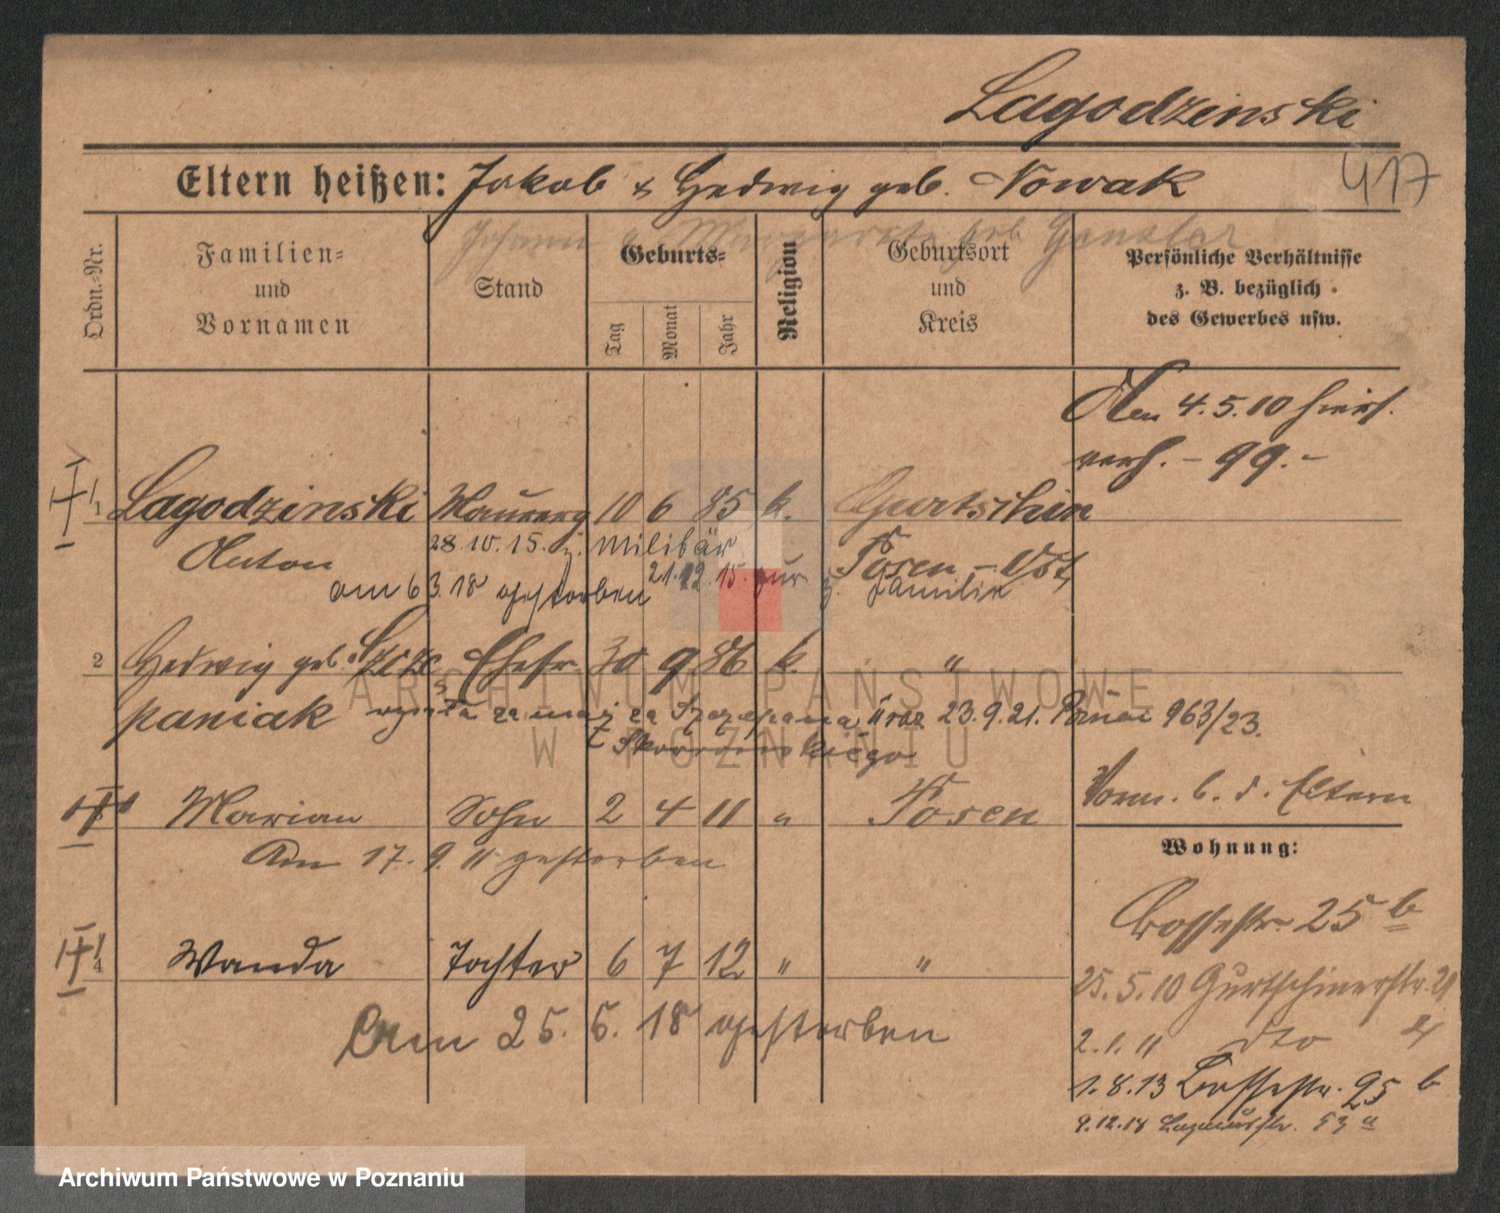 Lagodzinski
417
Eltern heißen: Jakob & Hedwig geb. Nowak
Johann u. Margarete geb. Gensler
Ordn.-Nr.
Familien- und Vornamen
Stand
Geburts-
Tag
Monat
Jahr
Religion
Geburtsort und Kreis
Persönliche Verhältnisse
z. B. bezüglich
des Gewerbes usw.
Am 4.5.10 hies.
verh. - 99.-
1 Lagodzinski Maurerg 10 6 85 k. Gurtschin
Anton 28.10.15. z. Militär Posen-Ost
21.12.15. zur z. Familie
am 6 3.18 gestorben
2 Hedwig geb. Szcze Ehefr. 30 9 86 k. "
paniak wyszła za mąż za Szczepana 23.9.21. 963/23.
3 Marian Sohn 2 4 11 " Posen
Am 17. 9. 11 gestorben
Vorm. b. d. Eltern
Wohnung:
Bossestr. 25 b
4 Wanda Tochter 6 7 12 " "
25.5.10 Gurtschinerstr. 21
Am 25. 6. 18 gestorben
2.1.11 dto
1.8.13 Bossestr. 25 b
9.12.18
ARCHIWUM PAŃSTWOWE
W POZNANIU
Archiwum Państwowe w Poznaniu